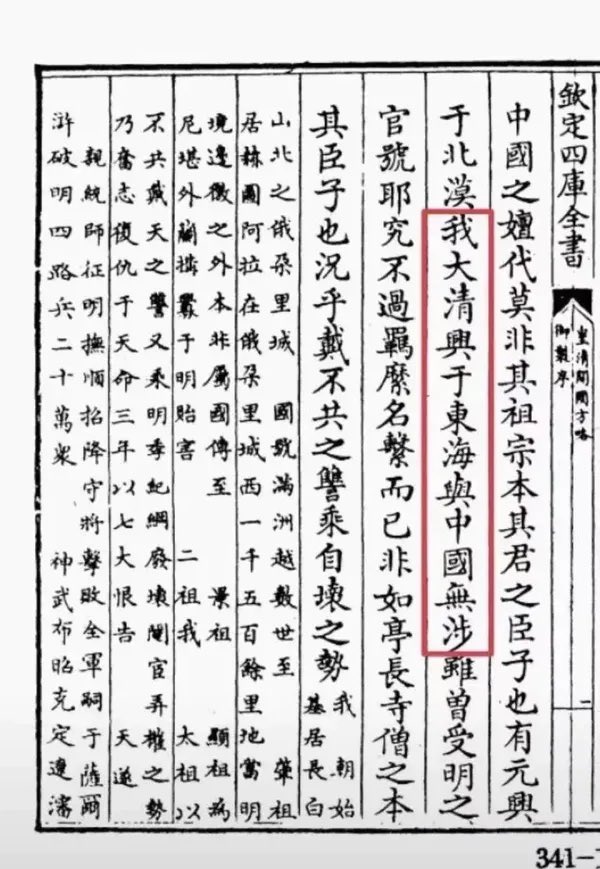 欽定四庫全書
皇清開國方略
御製序
二
中國之嬗代莫非其祖宗本其君之臣子也有元興
于北漠我大清興于東海與中國無涉雖曾受明之
官號耶究不過羈縻名繫而已非如亭長寺僧之本
其臣子也況乎戴不共之讐乘自壞之勢
我朝始
基居長白
山北之俄朶里城 國號滿洲越數世至 肇祖
居赫圖阿拉在俄朶里城西一千五百餘里地當明
境邊徼之外本非屬國傳至 景祖 顯祖為
尼堪外蘭搆釁于明貽害 二祖我 太祖以
不共戴天之讐又乘明季紀綱廢壞閹官弄權之勢
乃奮志復仇于天命三年以七大恨告 天遂
親統師征明撫順招降守將擊敗全軍嗣于薩爾
滸破明四路兵二十萬衆 神武布昭克定遼瀋
341-